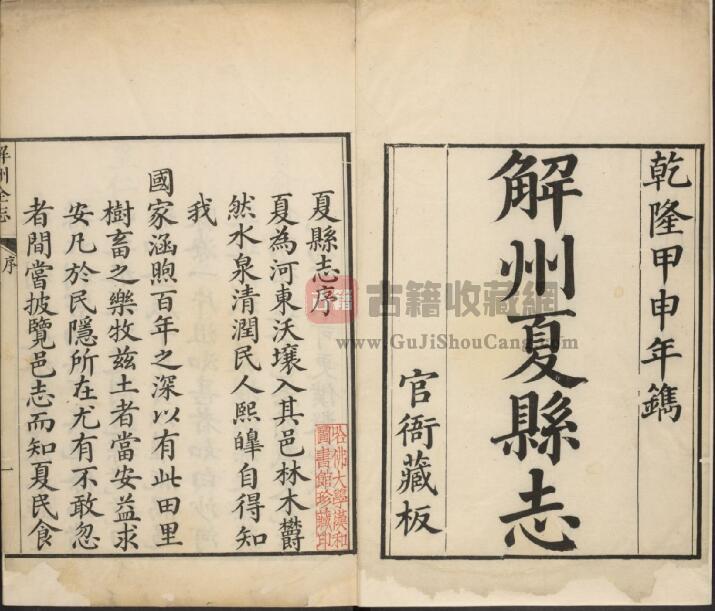 乾隆甲申年鐫
解州夏縣志
官衙藏板
夏縣志序
夏為河東沃壤入其邑林木欝
然水泉清潤民人熙皞自得知
我
國家涵煦百年之深以有此田里
樹畜之樂牧茲土者當安益求
安凡於民隱所在尤有不敢忽
者間嘗披覽邑志而知夏民食
解州全志
序
一
哈佛大學漢和
圖書館珍藏印
古籍
古籍收藏網
www.GuJiShouCang.com